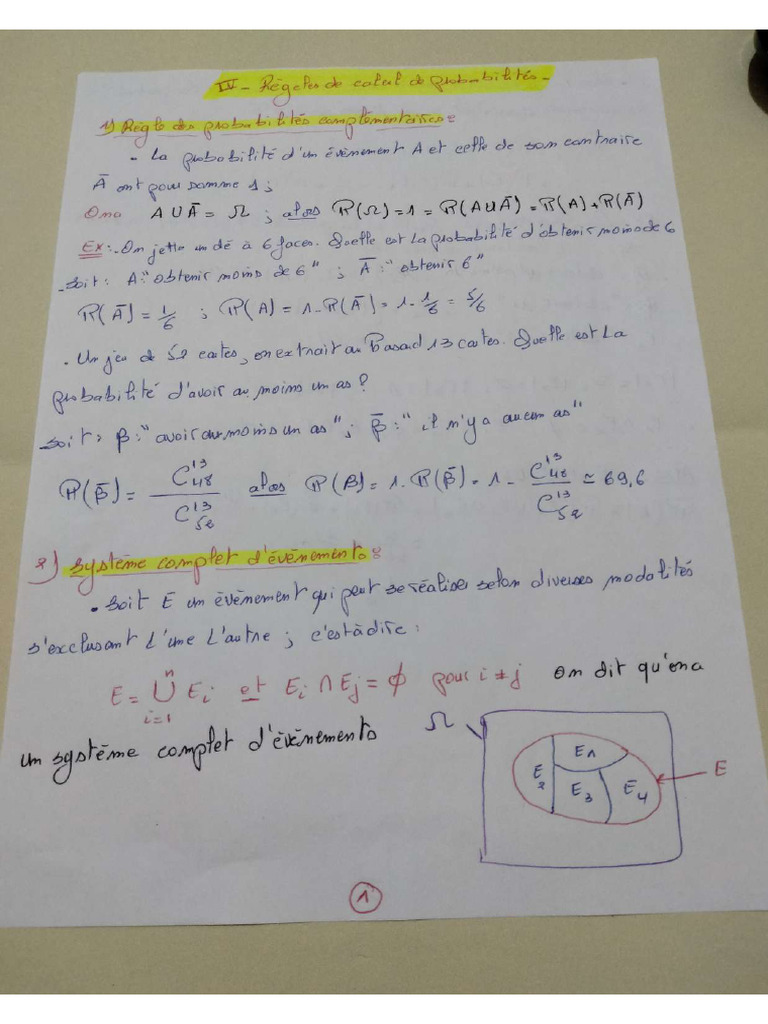 IV - Régles de calcul de probabilités -
1) Règle des probabilités complémentaires :
. La probabilité d'un évènement A et celle de son contraire
Ā ont pour somme 1 ;
On a A ∪ Ā = Ω ; alors P(Ω) = 1 = P(A ∪ Ā) = P(A) + P(Ā)
Ex : - On jette un dé à 6 faces. Quelle est la probabilité d'obtenir moins de 6
- soit : A : "obtenir moins de 6" ; Ā : "obtenir 6"
P(Ā) = 1/6 ; P(A) = 1 - P(Ā) = 1 - 1/6 = 5/6
. Un jeu de 52 cartes, on extrait au hasard 13 cartes. Quelle est La
probabilité d'avoir au moins un as ?
soit : B : "avoir au moins un as" ; B̄ : "il n'y a aucun as"
P(B̄) = C₄₈¹³ / C₅₂¹³ alors P(B) = 1 - P(B̄) = 1 - C₄₈¹³ / C₅₂¹³ ≃ 69,6
2) Système complet d'évènements :
. Soit E un évènement qui peut se réaliser selon diverses modalités
s'excluant L'une L'autre ; c'est à dire :
E = ⋃ᵢ₌₁ⁿ Eᵢ et Eᵢ ∩ Eⱼ = ∅ pour i ≠ j on dit qu'on a
un système complet d'évènements
Ω
E1
E2
E3
E4
E
1